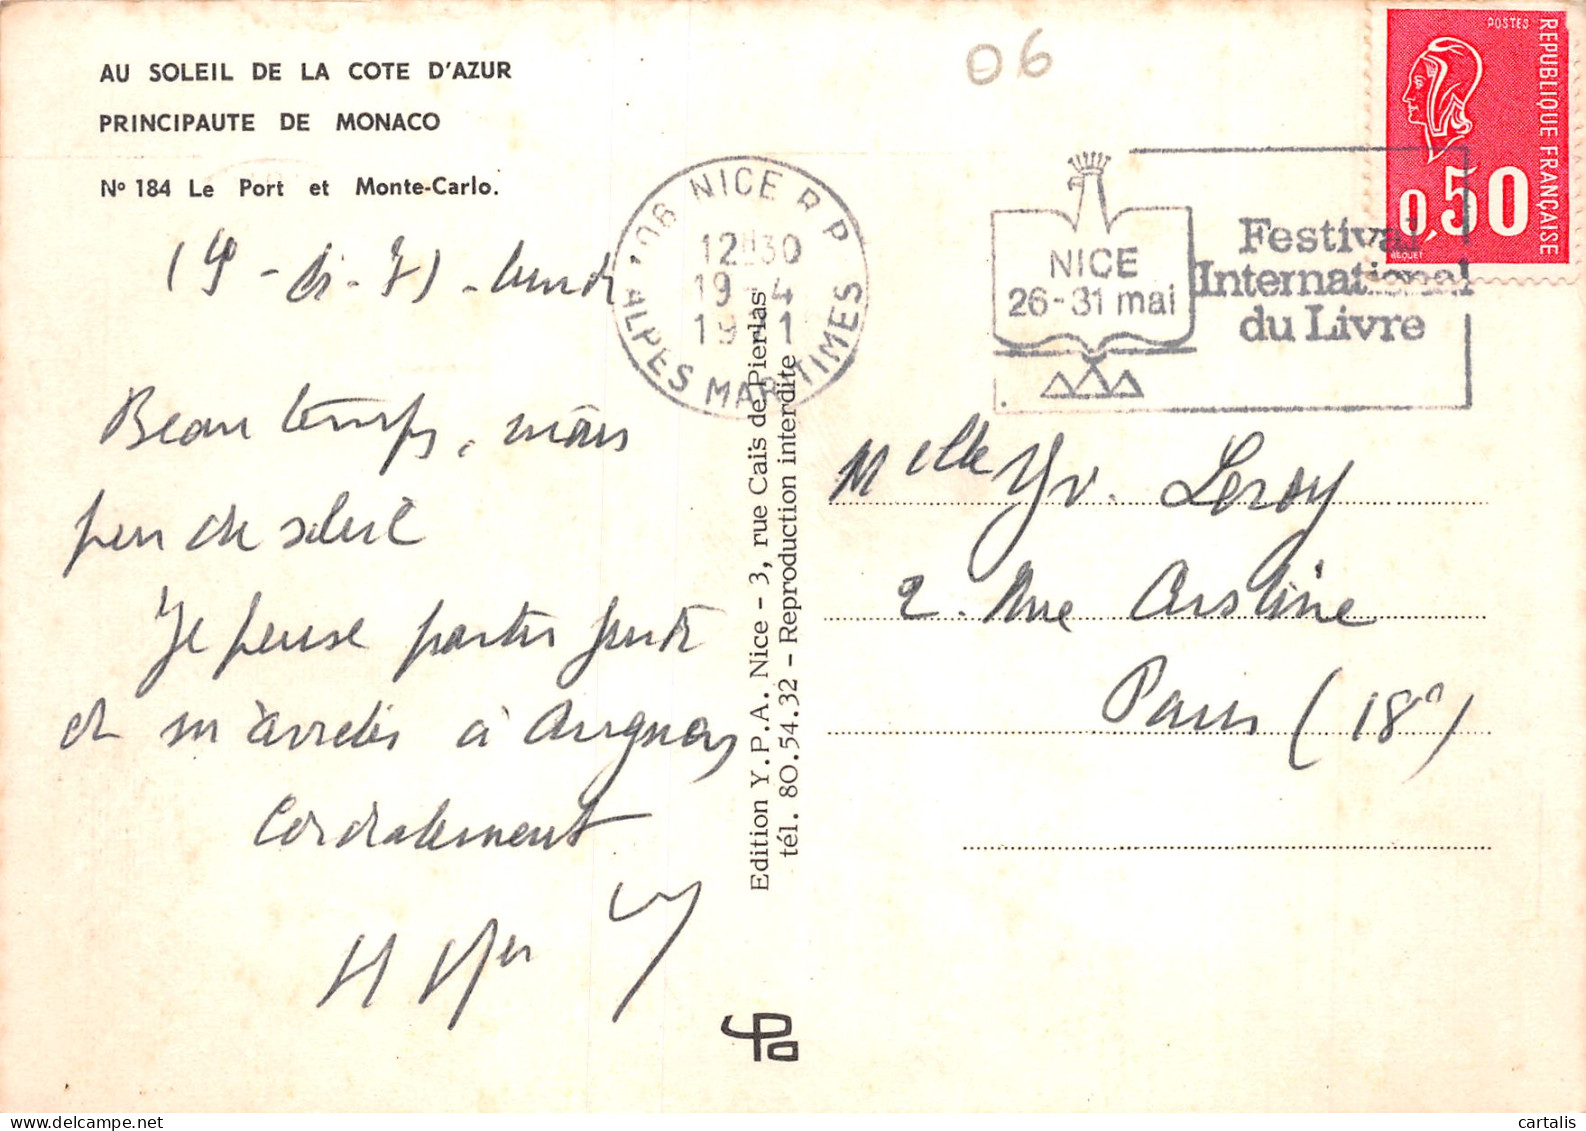 AU SOLEIL DE LA COTE D'AZUR
PRINCIPAUTE DE MONACO
Nº 184 Le Port et Monte-Carlo.
Beau temps, mais
peu de soleil
Je pense partir jeudi
et m'arrêter à Avignon
Cordialement
06
06 NICE R.P.
12H30
19-4
1971
ALPES MARITIMES
NICE
26-31 mai
Festival
International
du Livre
POSTES
REPUBLIQUE FRANÇAISE
0,50
BEQUET
Melle Yv. Leroy
2. Rue
Paris (18e)
Edition Y.P.A. Nice - 3, rue Caïs de Pierlas
tél. 80.54.32 - Reproduction interdite
cartalis